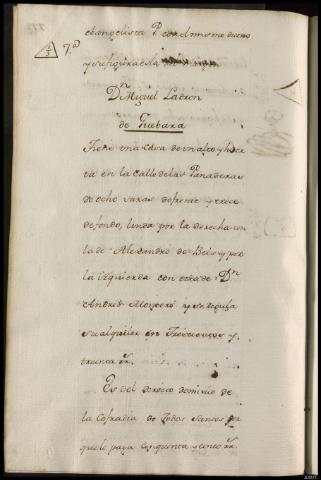 evangelista P. con el mismo dueño
y su figura es la
A/3 7.ª
Dn. Miguel Ladron
de Guebara
Tiene una Casa de un alto y huer
ta en la Calle de las Panaderas
de ocho varas de frente y trece
de fondo, linda por la derecha con
la de Alexandro de Bels y por
la izquierda con otra de Dn.
Andres Moyrero y se regula
su alquiler en Trescientos y
treinta rs.
Es del directo dominio de
la Cofradia de Todos Santos por
que le paga cinquenta y cinco rs.